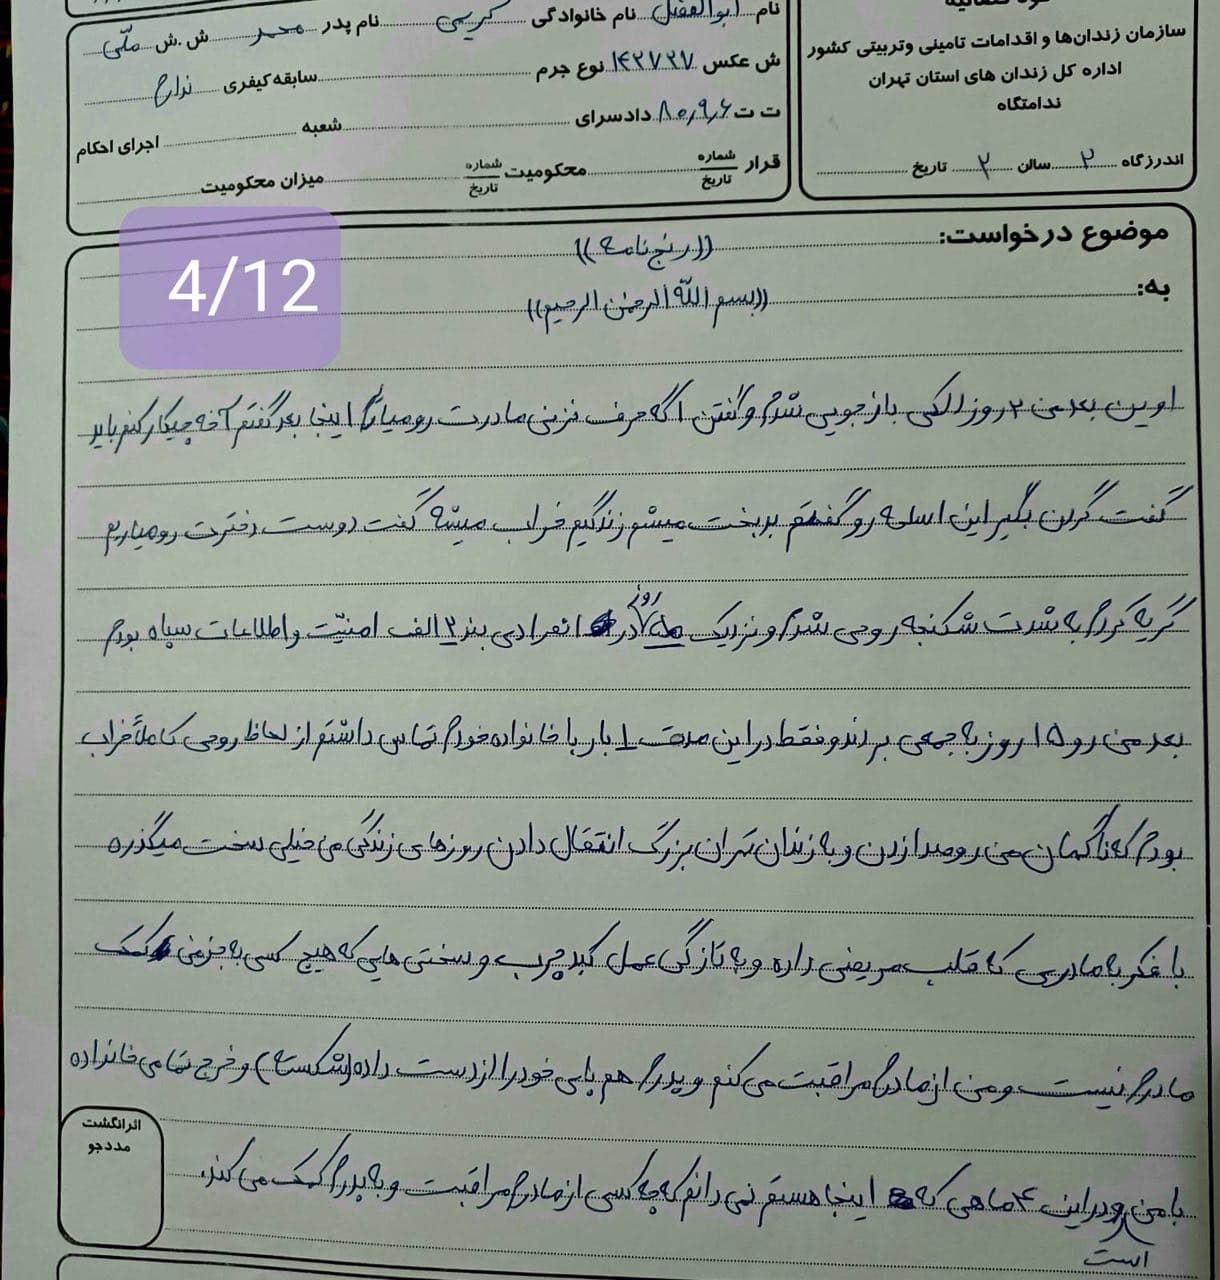 سازمان زندان‌ها و اقدامات تامینی وتربیتی کشور
اداره کل زندان های استان تهران
ندامتگاه
اندرزگاه ۲ سالن ۲ تاریخ
نام ابوالفضل نام خانوادگی کریمی نام پدر محمد ش.ش ملّی
ش عکس ۱۴۲۷۲۷ نوع جرم سابقه کیفری ندارم
ت ت ۸۰,۹,۶ دادسرای شعبه اجرای احکام
قرار شماره تاریخ محکومیت شماره تاریخ میزان محکومیت
4/12
موضوع درخواست: ((رنج نامه))
به: ((بسم الله الرحمن الرحیم))
اوین بعد من ۲ روز الکی بازجویی شدم و گفتن اگه حرف نزنی مادرت رو میارم اینجا بعد گفتم آخه چیکار کنم باید
گفت گردن بگیر این اسلحه رو گفتم بدبخت میشم زندگیم خراب میشه گفت دوست دخترت رو میاریم
گریه کردم به شدت شکنجه روحی شدم و نزدیک روز در انفرادی بند ۲ الف امنیّت و اطلاعات سپاه بودم
بعد من رو ۱۵ روز به جمعی بردند و فقط در این مدت ۱ بار با خانواده خودم تماس داشتم از لحاظ روحی کاملاً خراب
بودم که ناگهان من رو صدا زدن و به زندان تهران بزرگ انتقال دادن روزهای زندگی من خیلی سخت میگذره
با فکر به مادری که قلب مریضی داره و به تازگی عمل کبد چرب و سختی هایی که هیچ کسی به جز من کمک
مادرم نیست و من از مادرم مراقبت می کنم و پدرم هم پای خود را از دست داده (شکسته) و خرج تمامی خانواده
با من است و در این ۴ ماهی که اینجا هستم نمی دانم که چه کسی از مادرم مراقبت و به پدرم کمک می کند.
اثرانگشت
مددجو